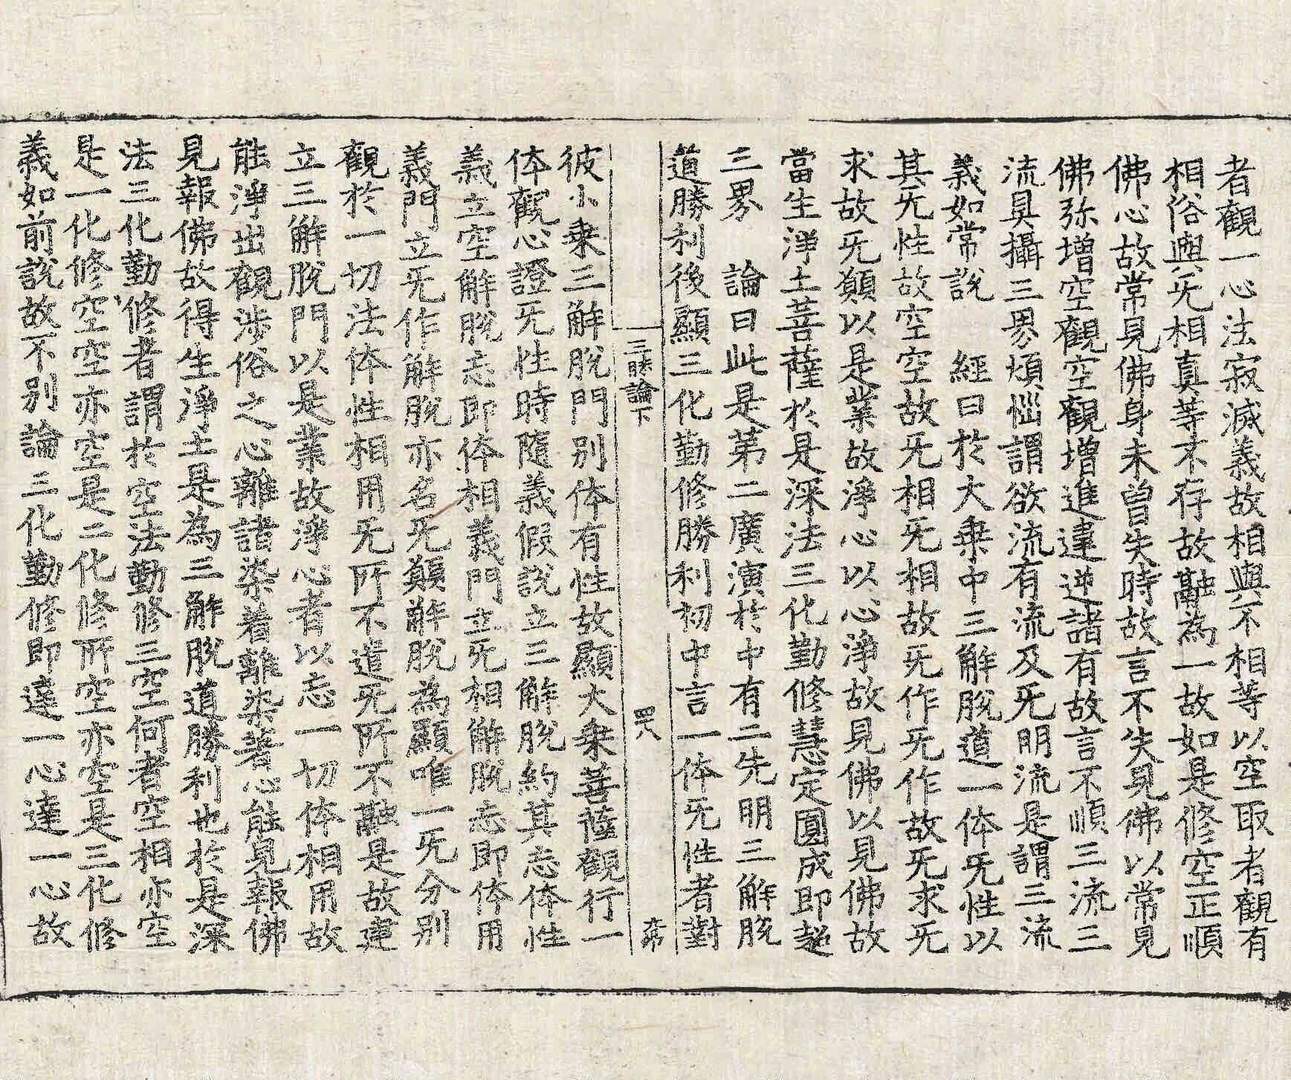 者觀一心法寂滅義故相與不相等以空取者觀有
相俗與旡相真等不存故融為一故如是修空正順
佛心故常見佛身未曾失時故言不失見佛以常見
佛弥增空觀空觀增進違逆諸有故言不順三流三
流具攝三界煩惱謂欲流有流及旡明流是謂三流
義如常說　經曰於大乘中三解脫道一体旡性以
其旡性故空空故旡相旡相故旡作旡作故旡求旡
求故旡願以是業故淨心以心淨故見佛以見佛故
當生淨土菩薩於是深法三化勤修慧定圓成即超
三界　論曰此是第二廣演於中有二先明三解脫
道勝利後顯三化勤修勝利初中言一体旡性者對
三昧論下　四八　大希
彼小乘三解脫門别体有性故顯大乘菩薩觀行一
体觀心證旡性時隨義假說立三解脫約其忘体性
義立空解脫忘即体相義門立旡相解脫忘即体用
義門立旡作解脫亦名旡願解脫為顯唯一旡分别
觀於一切法体性相用旡所不遣旡所不融是故建
立三解脫門以是業故淨心者以忘一切体相用故
能淨出觀涉俗之心離諸染着離染著心能見報佛
見報佛故得生淨土是為三解脫道勝利也於是深
法三化勤修者謂於空法勤修三空何者空相亦空
是一化修空空亦空是二化修所空亦空是三化修
義如前說故不别論三化勤修即達一心達一心故